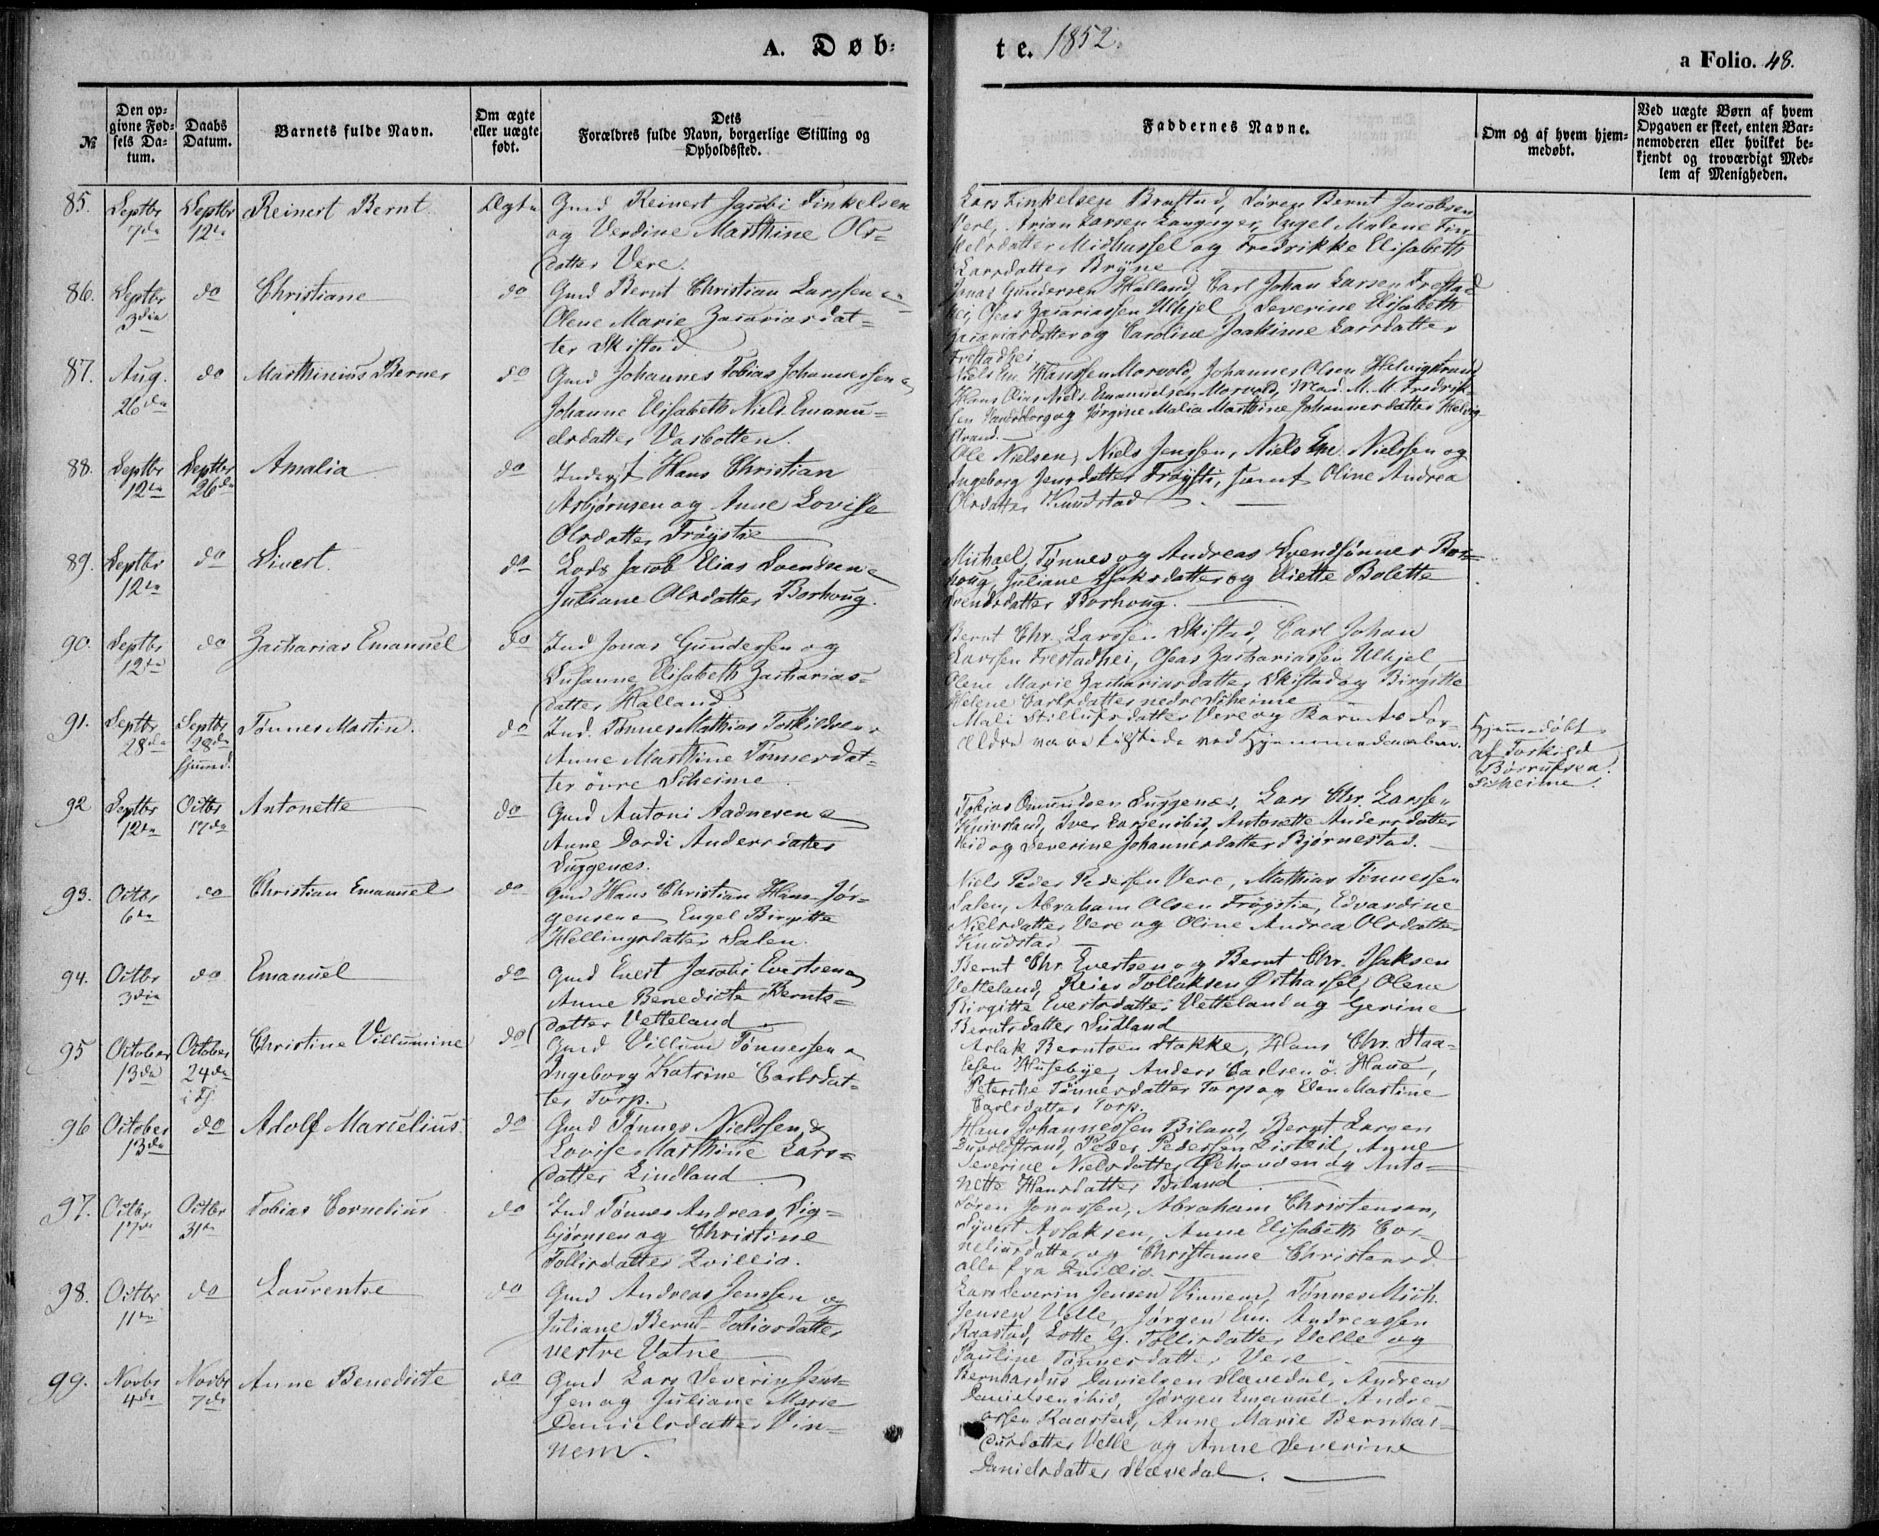 A. Døb:
te. 1852.
a Folio. 48.
№
Den op=
givne Fød=
sels Da=
tum.
Daabs
Datum.
Barnets fulde Navn.
Om ægte
eller uægte
født.
Dets
Forældres fulde Navn, borgerlige Stilling og
Opholdssted.
Faddernes Navne.
Om og af hvem hjem=
medøbt.
Ved uægte Børn af hvem
Opgaven er skeet, enten Bar=
nemoderen eller hvilket be=
kjendt og troværdigt Med=
lem af Menigheden.
85. Septbr 7de
Septbr 12te
Reinert Bernt
Ægte
Gmd Reinert Jacobi Finkelsen
og Verdine Marthine Ols=
datter Vere.
Lars Finkelsen Brastad, Søren Bernt Jacobsen
Vere, Arian Larsen Langager, Engel Malene Fin=
kelsdatter Midhassel og Fredrikke Elisabeth
Larsdatter Bryne
86. Septbr 3die
do
Christiane
do
Gmd Bernt Christian Larssen og
Olene Marie Zacariasdat=
ter Skistad
Jonas Gundersen Halland, Carl Johan Larsen Frestad
hei, Oseas Zacariassen Ulhjel, Severine Elisabeth
Zacariasdatter og Caroline Joakime Larsdatter
Frestadhei
87. Aug. 26de
do
Marthinius Berner
do
Gmd Johannes Tobias Johannessen og
Johanne Elisabeth Niels Emanu=
elsdatter Vasbotten.
Niels Em. Hanssen Morvold, Johannes Olsen Helvigstrand
Hans Elias Niels Emanuelsen Morvold, Mad. M. M. Fredrik=
sen Vandsborg og Jørgine Malia Marthine Johannesdatter Helvig
strand.
88. Septbr 12te
Septbr 26de
Amalia
do
Inderst Hans Christian
Asbjørnsen og Anne Lovise
Olsdatter Trøystie
Ole Nielsen, Niels Jenssen, Niels Em. Nielssen og
Ingeborg Jensdatter Trøysti, samt Oline Andrea
Olsdatter Knudstad.
89. Septbr 12te
do
Sivert.
do
Lods Jacob Elias Svendsen og
Juliane Olsdatter Borhoug.
Michael, Tønnes og Andreas Svendsønner Bor=
houg, Juliane Isaksdatter og Eliette Bolette
Svendsdatter Borhoug.
90. Septbr 12te
do
Zacharias Emanuel
do
Ind Jonas Gundersen og
Susanne Elisabeth Zacharias=
datter Halland
Bernt Chr. Larssen Skistad, Carl Johan
Larssen Frestadhei, Oseas Zachariassen Ulhjel
Olene Marie Zachariasdatter Skistad og Birgitte
Helene Carlsdatter nedre Skeime
91. Septbr 28de
Septbr 28de
hjemd.
Tønnes Martin.
do
Ind. Tønnes Mathias Toskildsen og
Anne Marthine Tønnesdat=
ter øvre Skeime
Mali Stillufsdatter Vere og Barnets For=
ældre vare tilstede ved Hjemmedaaben.
Hjemmedøbt
af Toskild
Børrufsen
Skeime.
92 Septbr 12te
Octbr 17de
Antonette
do
Gmd Antoni Aadnesen og
Anne Dordi Andersdatter
Duggenæs.
Tobias Omundsen Duggenæs, Lars Chr. Larssen
Kjørsland, Iver Larsen ibid, Antonette Andersdatter
ibid og Severine Johannesdatter Bjørnestad.
93. Octbr 6te
do
Christian Emanuel
do
Gmd Hans Christian Hans Jør=
gensen og Engel Birgitte
Hellingsdatter Salen.
Niels Peder Pedersen Vere, Mathias Tønnessen
Salen, Abraham Olsen Trøystie, Edvardine
Nielsdatter Vere og Oline Andrea Olsdatter
Knudstad
94. Octbr 3die
do
Emanuel
do
Gmd Evert Jacobi Evertsen og
Anne Benedicte Bernts=
datter Vetteland
Bernt Chr. Evertsen og Bernt Chr. Isaksen
Vetteland, Reier Tollaksen Østhassel, Olene
Birgitte Evertsdatter Vetteland og Gerine
Berntsdatter Sudland
95 October 13de
October 24de
Christine Villumine
do
Gmd Villum Tønnessen og
Ingeborg Katrine Carlsdat=
ter Torp.
Aslak Berntsen Stokke, Hans Chr. Staa=
lesen Husebye, Anders Carlsen ö. Haue,
Peterike Tønnesdatter Torp og Elen Martine
Carlsdatter Torp.
96 October 13de
do
Adolf Marcelius
do
Gmd Tønnes Nielssen &
Lovise Marthine Lars=
datter Lindland
Hans Johannessen Biland, Bernt Larsen
Duvoldstrand, Peder Pedersen, Anne
Severine Nielsdatter og Anto=
nette Hansdatter Biland
97. Octbr 17de
Octbr 31te
Tobias Cornelius
do
Ind Tønnes Andreas Sig=
bjørnsen og Christine
Tollisdatter Qvillio.
Søren Jonassen, Abraham Christensen,
Syvert Aslaksen, Anne Elisabeth Cor=
neliusdatter og Christianne Christensd.
alle fra Qvillio.
98. Octbr 11te
do
Laurentse
do
Gmd Andreas Jenssen og
Juliane Bernt Tobiasdatter
vestre Vatne
Lars Severin Jensen Vinnem, Tønnes Mich.
Jensen Velle, Jørgen Em. Andreassen
Raastad, Lotte G. Tollisdatter Velle og
Pauline Tønnesdatter Vere
99. Novbr 4de
Novbr 7de
Anne Benedicte
do
Gmd Lars Severin Jens=
sen og Juliane Marie
Danielsdatter Vin=
nem.
Bernhardus Danielsen Slævedal, Andreas
Danielsen ibid, Jørgen Emanuel Andre=
assen Raastad, Anne Marie Bernhar=
dusdatter Velle og Anne Severine
Danielsdatter Slævedal.